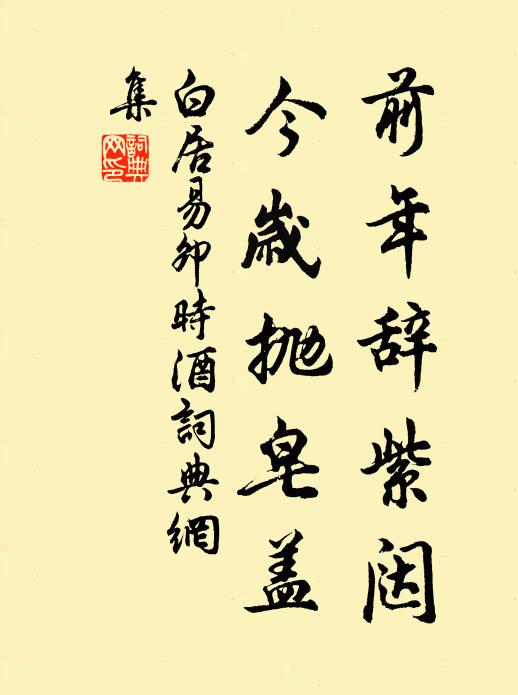 前年辞紫闼
今歲抛皂蓋
白居易卯時酒詞典網
集
詞典
网印